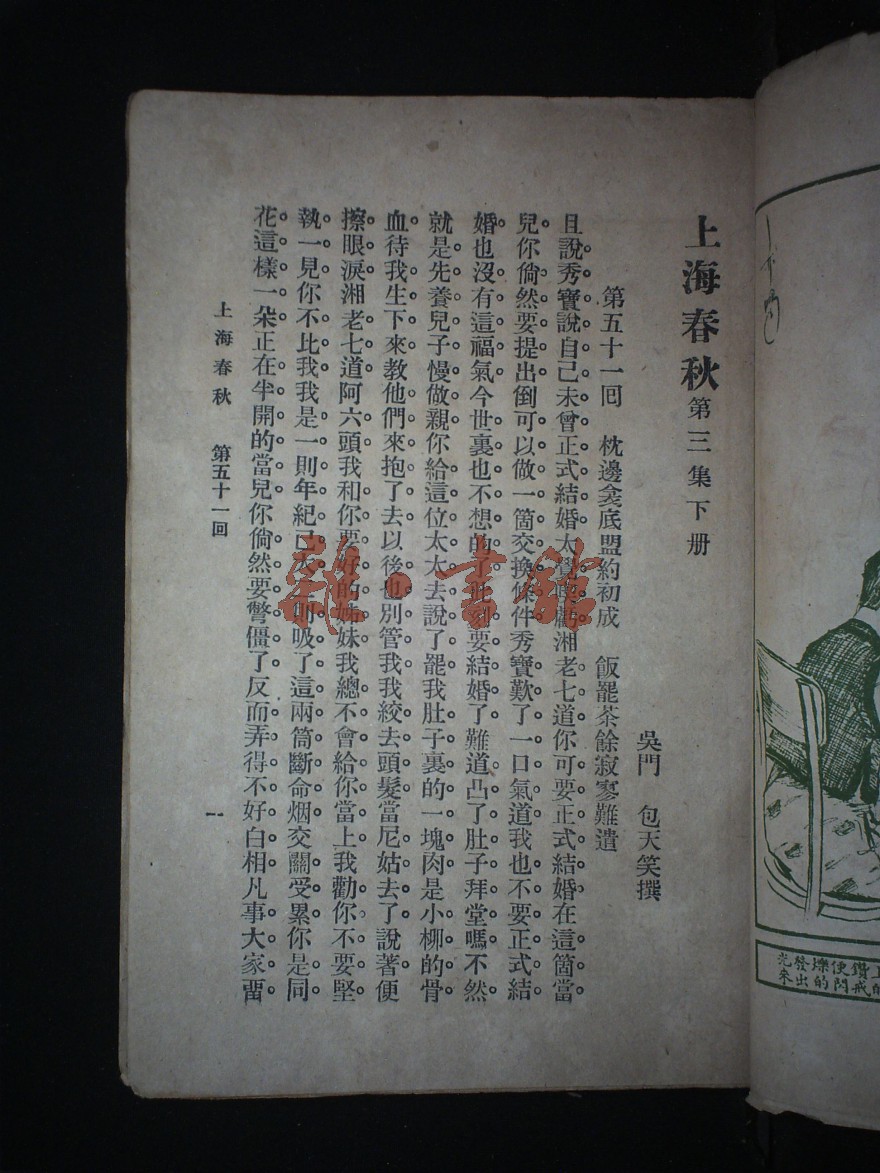 上海春秋第三集下册
吳門　包天笑撰
第五十一回　枕邊衾底盟約初成　飯罷茶餘寂寥難遣
且說秀寶說自己未曾正式結婚太湘老七道你可要正式結婚在這箇當
兒你倘然要提出倒可以做一箇交換條件秀寶歎了一口氣道我也不要正式結
婚也沒有這福氣今世裏也不想的了此刻要結婚了難道凸了肚子拜堂嗎不然
就是先養兒子慢做親你給這位太太去說了罷我肚子裏的一塊肉是小柳的骨
血待我生下來教他們來抱了去以後也別管我我絞去頭髮當尼姑去了說著便
擦眼淚湘老七道阿六頭我和你要好的姊妹我總不會給你當上我勸你不要堅
執一見你不比我我是一則年紀已大一則吸了這兩筒斷命烟交關受累你是同
花這樣一朶正在半開的當兒你倘然要警僵了反而弄得不好白相凡事大家畱
上海春秋　第五十一回
一
雜·書館
光發爍使鑽
來出的閃戒的